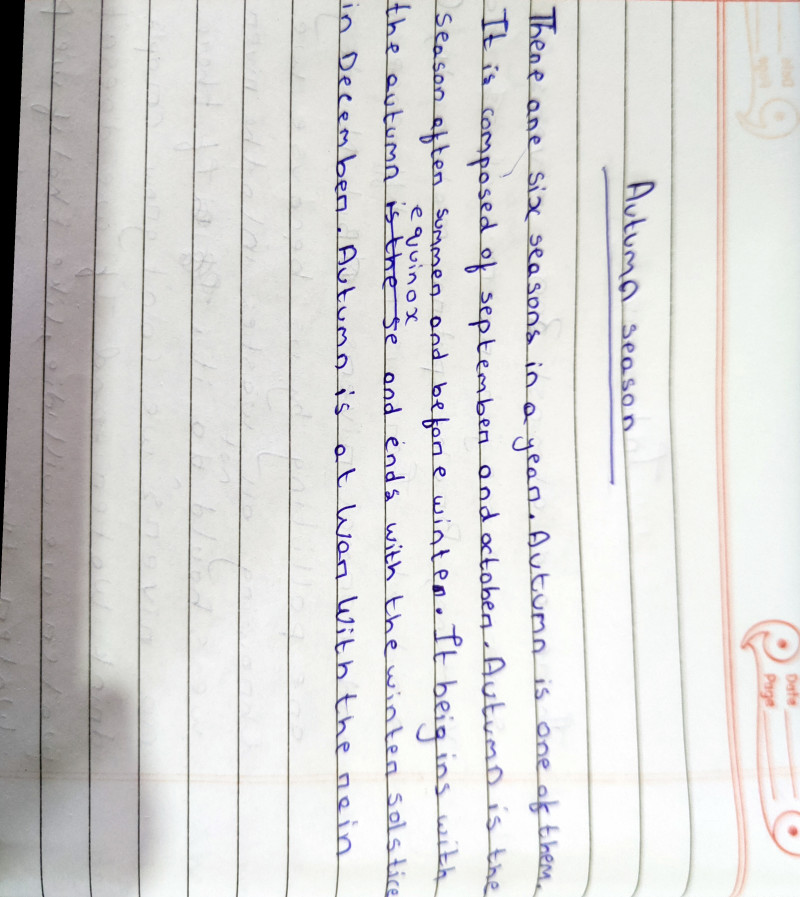 Date
Page
Autumn season
There are six seasons in a year. Autumn is one of them.
It is composed of september and october. Autumn is the
season after summer and before winter. It beigins with
equinox
the autumn is the se and ends with the winter solstice
in December. Autumn is at war With the rain